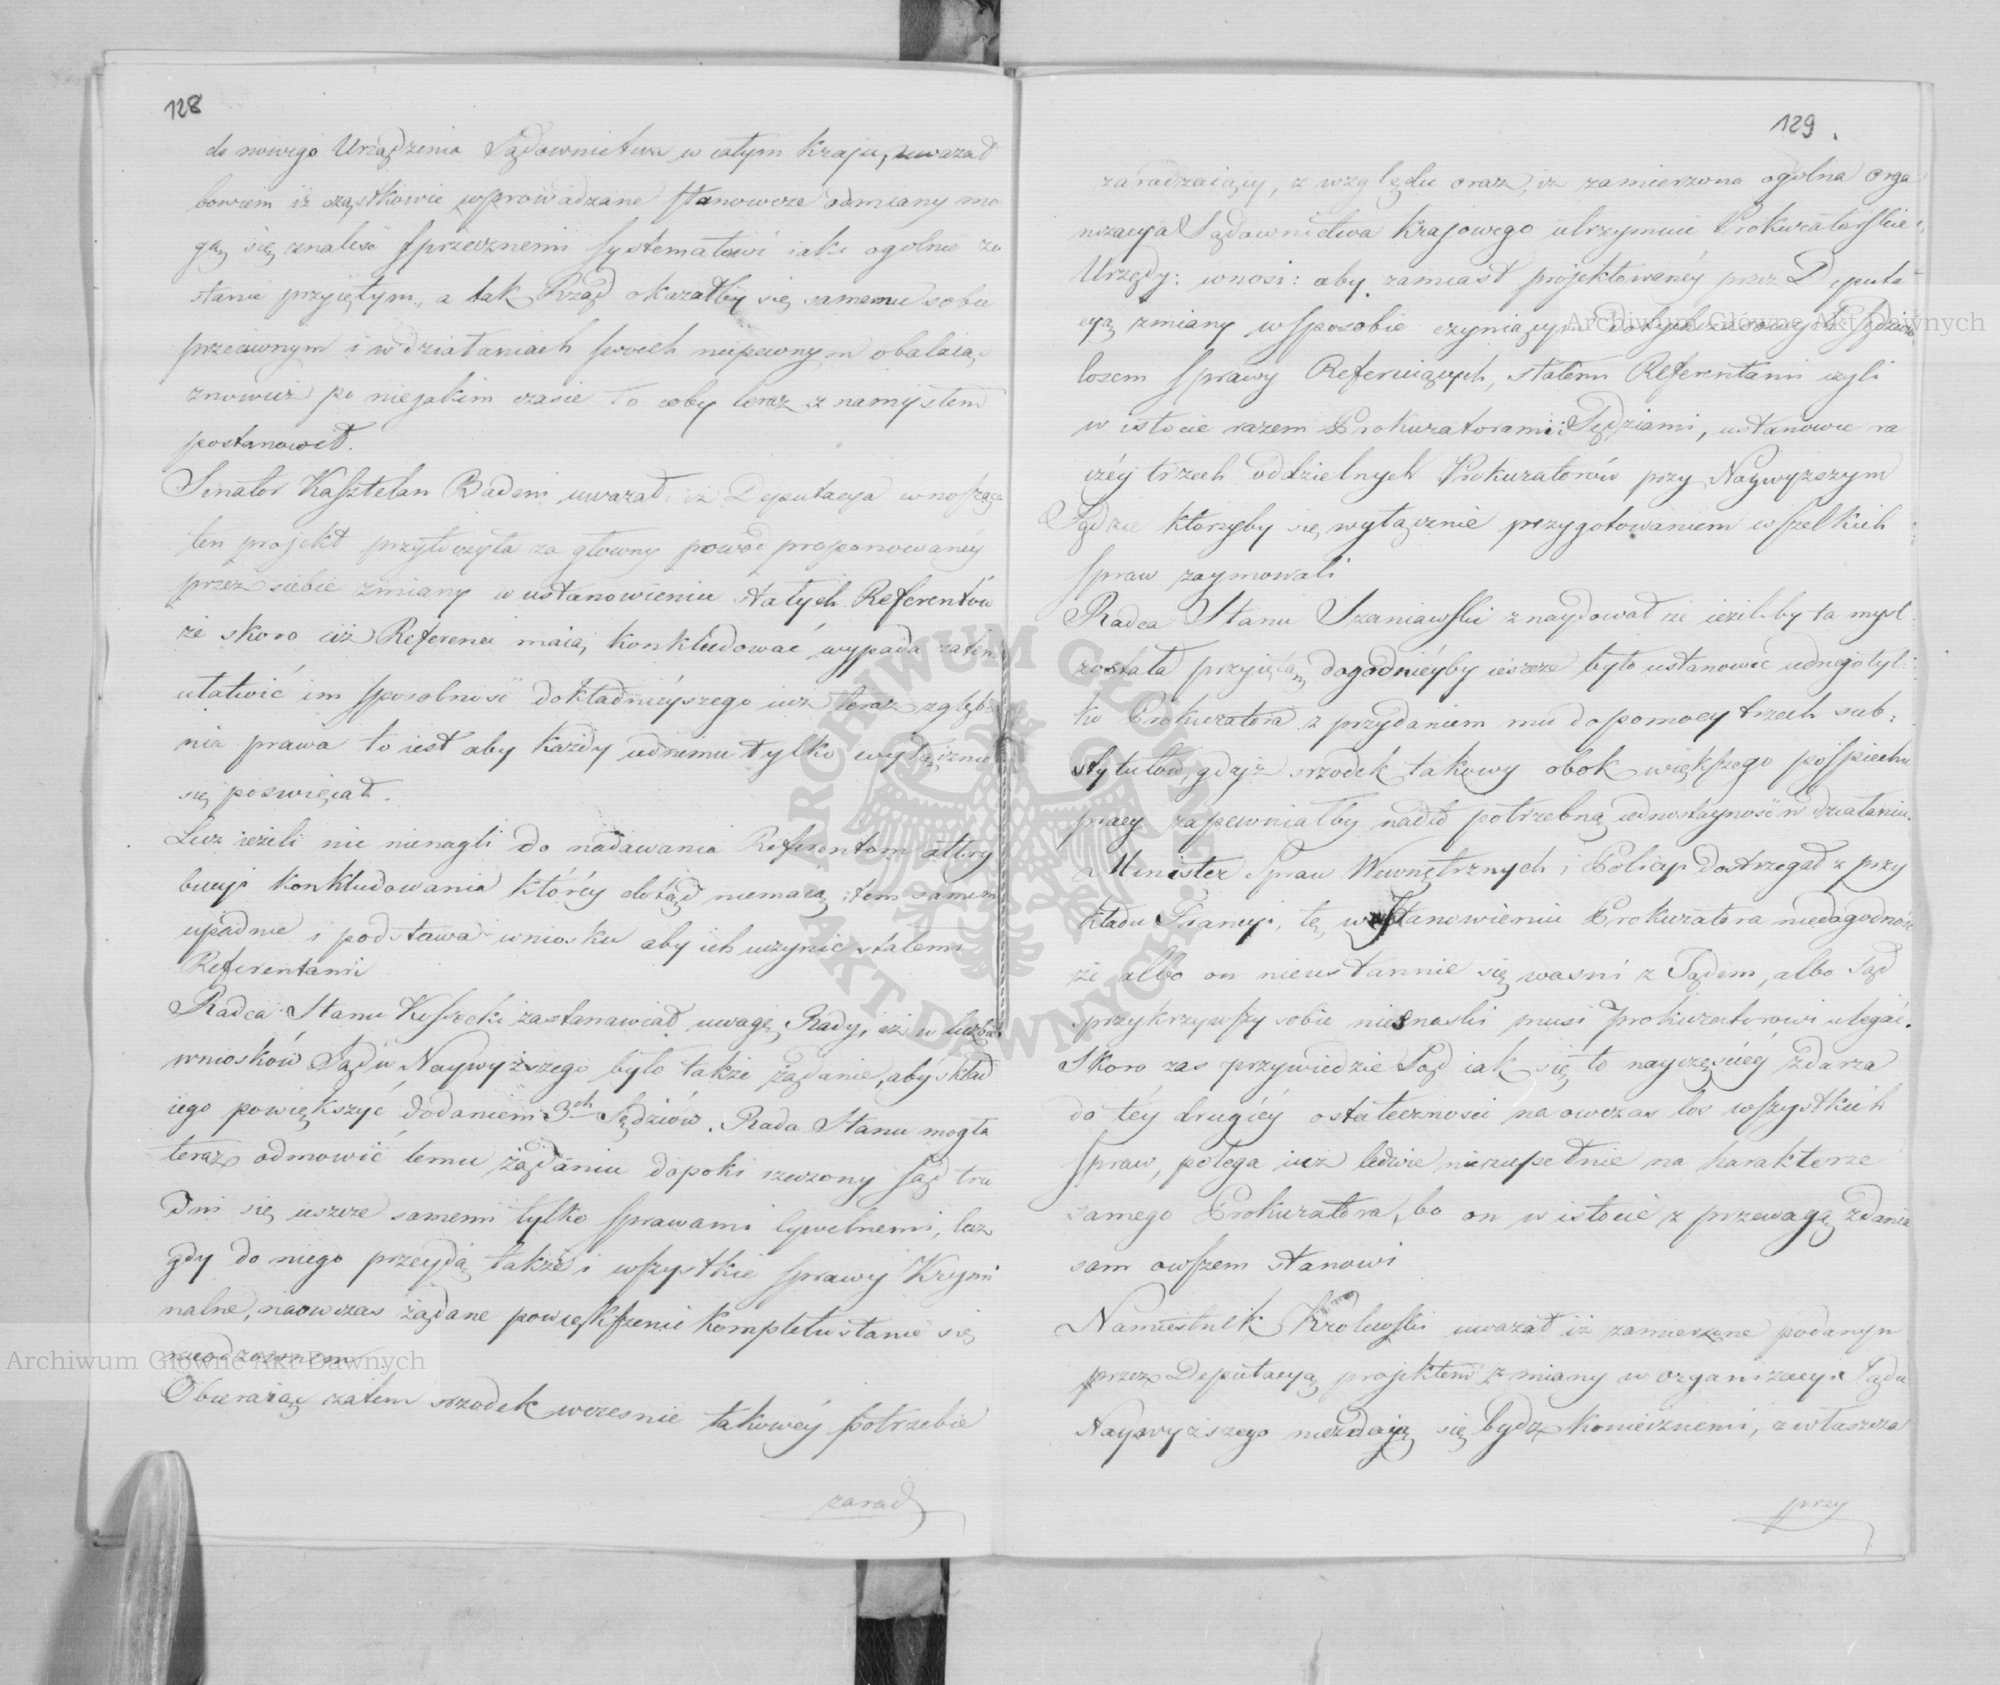 128
do nowego Urządzenia Sądownictwa w całym Kraju, uważał
bowiem iż cząstkowie wprowadzane stanowcze odmiany mo
gą się znaleść sprzecznemi systematowi iaki ogólnie zo
stanie przyiętym, a tak Rząd okazałby się samemu sobie
przeciwnym i w działaniach swoich niepewnym obalaiąc
znowuż po nieiakim czasie to coby teraz z namysłem
postanowił.
Senator Kasztelan Badeni uważał iż Deputacya wnosząca
ten projekt przytoczyła za główny powód proponowanéy
przez siebie zmiany w ustanowieniu stałych Referentów
że skoro ciż Referenci maią konkludować wypada zatem
ułatwić im sposobność dokładnieyszego już teraz zgłębie
nia prawa to iest aby każdy iednemu tylko wyłącznie
się poświęcał.
Lecz ieżeli nic nienagli do nadawania Referentom attry
bucyi konkludowania któréy dotąd niemaią, tém samem
upadnie i podstawa wniosku aby ich uczynić stałemi
Referentami
Radca Stanu Kossecki zastanawiał uwagę Rady, iż w liczbie
wniosków Sądu Naywyższego było także żądanie, aby skład
iego powiększyć dodaniem 3ch Sędziów. Rada Stanu mogła
teraz odmówić temu żądaniu dopóki rzeczony Sąd tru
dni się ieszcze samemi tylko sprawami cywilnemi, lecz
gdy do niego przeydą także i wszystkie sprawy Krymi
nalne, naowczas żądane powiększenie kompletu stanie się
nieodzownem.
Obieraiąc zatem srzodek wcześnie takowéy potrzebie
zarad
129.
zaradzaiący, z względu oraz, iż zamierzona ogólna orga
nizacya Sądownictwa Krajowego utrzymuie Prokuratorskie
Urzędy: wnosi: aby zamiast projektowanéy przez Deputa
cyą zmiany w sposobie czyniącym dotychczasowych Sędziów
losem sprawy Referuiących, stałemi Referentami czyli
w istocie razem Prokuratorami i Sędziami, ustanowić ra
czéy trzech oddzielnych Prokuratorów przy Naywyższym
Sądzie którzyby się wyłącznie przygotowaniem wszelkich
spraw zaymowali
Radca Stanu Szaniawski znaydował że ieżeliby ta myśl
została przyiętą, dogodniéyby ieszcze było ustanowić iednego tyl
ko Prokuratora z przydaniem mu do pomocy trzech sub
stytutów, gdyż srzodek takowy obok większego pośpiechu
pracy zapewniałby nadto potrzebną iednostayność w działaniu.
Minister Spraw Wewnętrznych i Policyi dostrzegał z przy
kładu Francyi, tę, w ustanowieniu Prokuratora niedogodność
że albo on nieustannie się waśni z Sądem, albo Sąd
sprzykrzywszy sobie niesnaski musi Prokuratorowi ulegać.
Skoro zaś przywiedzie Sąd iak się to nayczęściéy zdarza
do téy drugiéy ostateczności naowczas los wszystkich
spraw, polega iuż ledwie niezupełnie na harakterze
samego Prokuratora, bo on w istocie z przewagą zdania
sam owszem stanowi
Namiestnik Królewski uważał iż zamierzone podanym
przez Deputacyą projektem zmiany w organizacyi Sądu
Naywyższego niezdaią się bydź koniecznemi, zwłaszcza
przy
Archiwum Główne Akt Dawnych
Archiwum Główne Akt Dawnych
ARCHIWUM GŁÓWNE AKT DAWNYCH